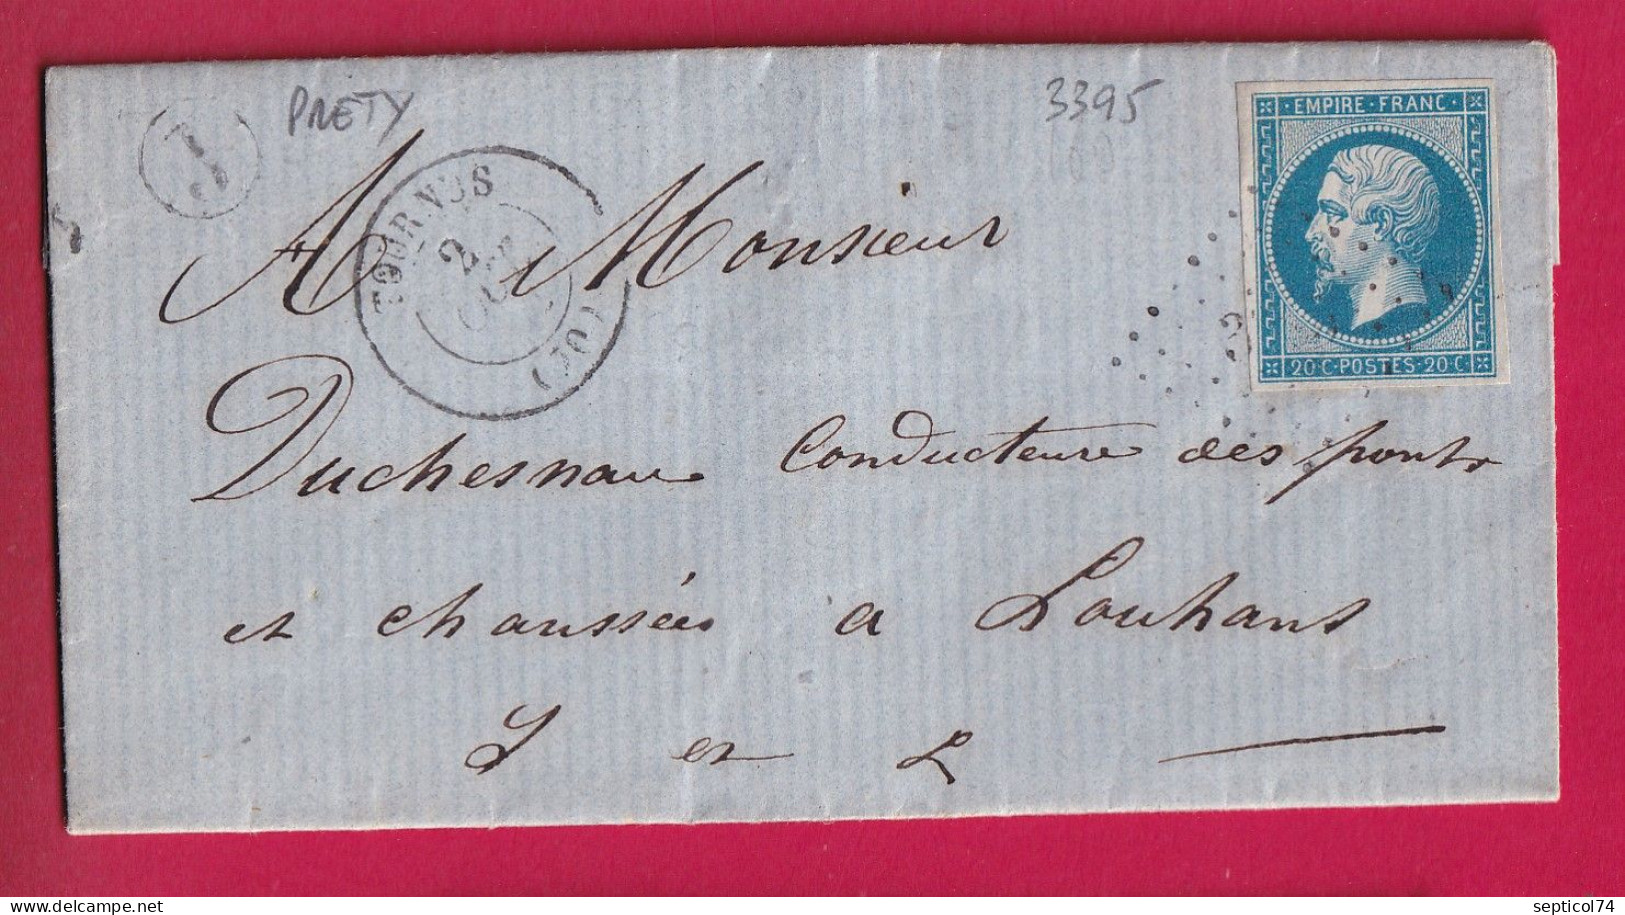 PRETY
3395
EMPIRE · FRANC ·
20 · C · POSTES · 20 · C
TOURNUS
2
(70)
A Monsieur
Duchesnau Conducteure des ponts
et chaussées a Louhans
S et L
septicol74